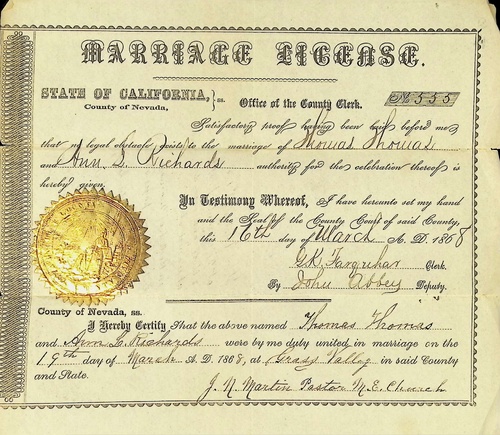 MARRIAGE LICENSE.
STATE OF CALIFORNIA, } ss.
County of Nevada,
Office of the County Clerk.
No 555
Satisfactory proof having been laid before me
that no legal obstacle exists to the marriage of Thomas Thomas
and Ann L. Richards authority for the celebration thereof is
hereby given.
In Testimony Whereof, I have hereunto set my hand
and the Seal of the County Court of said County,
this 16th day of March A. D. 1868
G.K. Farquhar Clerk.
By John Abbey Deputy.
County of Nevada, ss.
I Hereby Certify That the above named Thomas Thomas
and Ann L. Richards were by me duly united in marriage on the
19th day of March A. D. 1868, at Grass Valley in said County
and State.
J. N. Martin Pastor M. E. Church